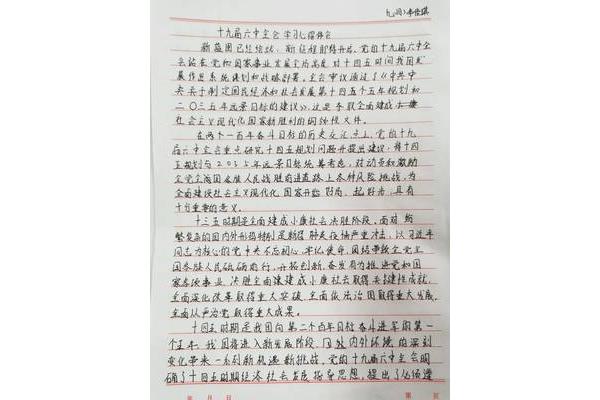 十九届六中全会学习心得体会
新蓝图已经绘就，新征程即将开启。党的十九届六中全
会站在党和国家事业发展全局高度对十四五时间我国发
展作出系统谋划和战略部署。全会审议通过了《中共中
央关于制定国民经济和社会发展第十四个五年规划和
二〇三五年远景目标的建议》，这是夺取全面建成
社会主义现代化国家新胜利的纲领性文件。
在两个一百年奋斗目标的历史交汇点上，党的十九
届六中全会重点研究十四五规划问题并提出建议，将十四
五规划与2035年远景目标统筹考虑，对动员和激励
全党全国各族人民战胜前进道路上各种风险挑战，为
全面建设社会主义现代化国家开好局、起好步，具有
十分重要的意义。
十三五时期是全面建成小康社会决胜阶段。面对
繁复杂的国内外形势特别是新冠肺炎疫情严重冲击，以习近平
同志为核心的党中央不忘初心、牢记使命，团结带领全党全
国各族人民砥砺前行，开拓创新，奋发有为推进党和国
家各项事业，决胜全面建成小康社会取得决定性成就，
全面深化改革取得重大突破，全面依法治国取得重大发展，
全面从严治党取得重大成果。
十四五时期是我国向第二个百年目标奋斗进军的第一
个五年，我国将进入新发展阶段，国内外环境的深刻
变化带来一系列新机遇新挑战。党的十九届六中全会明
确了十四五时期经济社会发展指导思想，提出了必须遵
年 月 日 第 页